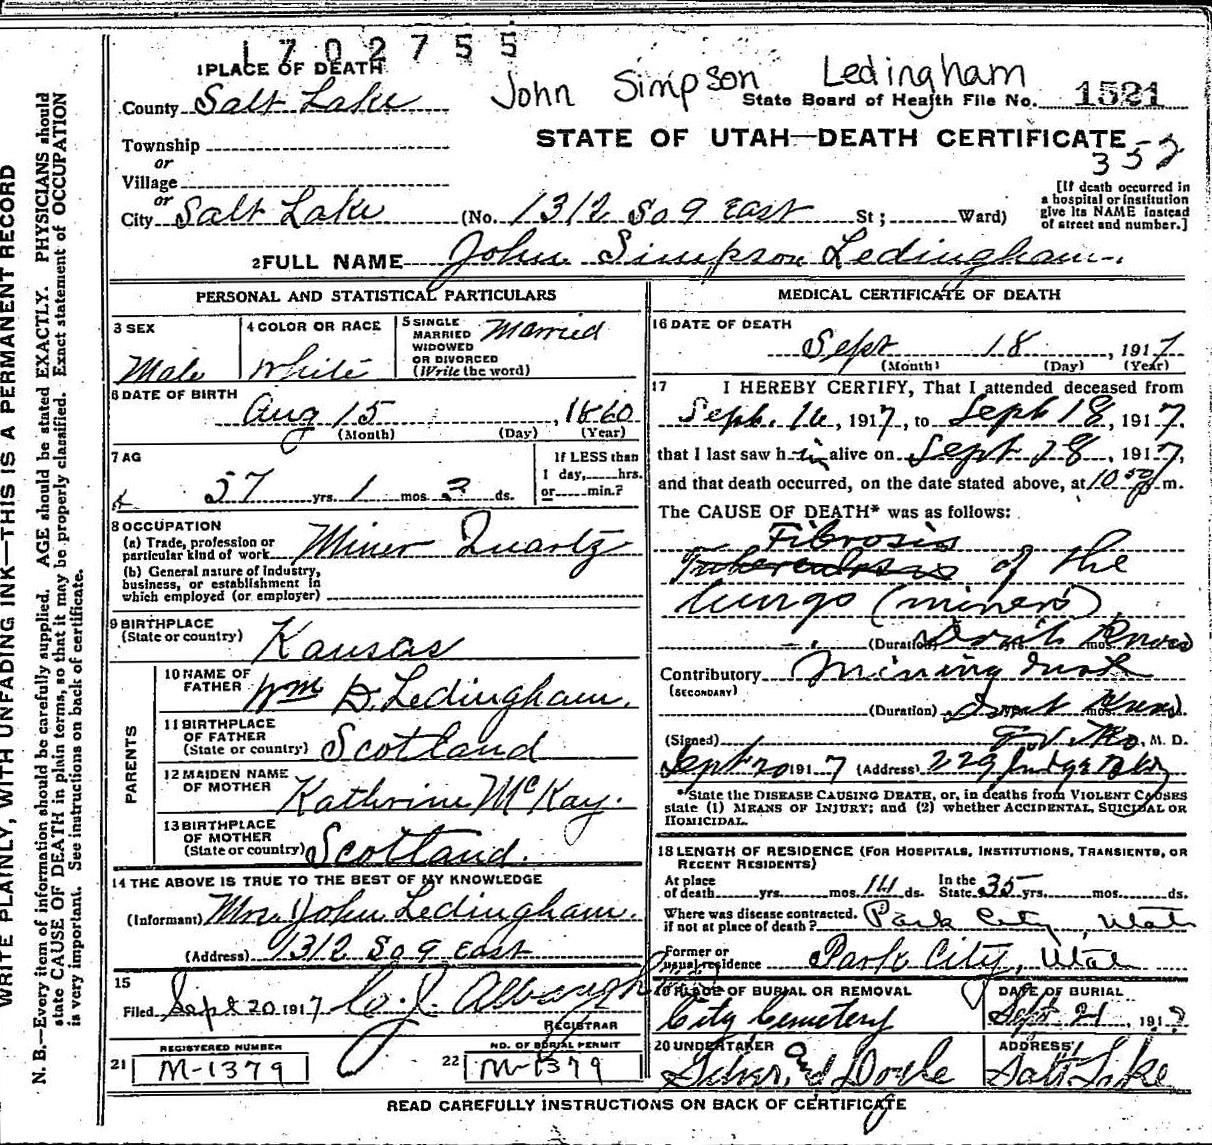 1702755
1 PLACE OF DEATH
John Simpson Ledingham
County Salt Lake
State Board of Health File No. 1521
STATE OF UTAH—DEATH CERTIFICATE
352
Township
or
Village
or
City Salt Lake (No. 1312 So 9 East St; Ward)
[If death occurred in
a hospital or institution
give its NAME instead
of street and number.]
2 FULL NAME John Simpson Ledingham
PERSONAL AND STATISTICAL PARTICULARS
3 SEX Male
4 COLOR OR RACE White
5 SINGLE
MARRIED
WIDOWED
OR DIVORCED
(Write the word)
Married
6 DATE OF BIRTH
Aug 15, 1860
(Month) (Day) (Year)
7 AG
57 yrs. 1 mos. 3 ds.
If LESS than
1 day, hrs.
or min.?
8 OCCUPATION
(a) Trade, profession or
particular kind of work Miner Quartz
(b) General nature of industry,
business, or establishment in
which employed (or employer)
9 BIRTHPLACE
(State or country) Kansas
PARENTS
10 NAME OF
FATHER Wm D. Ledingham.
11 BIRTHPLACE
OF FATHER
(State or country) Scotland
12 MAIDEN NAME
OF MOTHER Kathrine McKay.
13 BIRTHPLACE
OF MOTHER
(State or country) Scotland.
14 THE ABOVE IS TRUE TO THE BEST OF MY KNOWLEDGE
(Informant) Mrs John Ledingham.
(Address) 1312 So 9 East
15
Filed Sept 20 1917
REGISTRAR
REGISTERED NUMBER
21 M-1379
NO. OF BURIAL PERMIT
22 M-1379
MEDICAL CERTIFICATE OF DEATH
16 DATE OF DEATH
Sept 18, 1917
(Month) (Day) (Year)
17 I HEREBY CERTIFY, That I attended deceased from
Sept. 16, 1917, to Sept 18, 1917.
that I last saw h im alive on Sept 18, 1917,
and that death occurred, on the date stated above, at 10 50 p m.
The CAUSE OF DEATH* was as follows:
Fibrosis
Tuberculosis of the
lungs (miners)
(Duration) Don't Know
Contributory Mining
(SECONDARY)
(Duration) Don't Know.
(Signed) M. D.
Sept 20 1917 (Address) 229 Judge Bldg
*State the DISEASE CAUSING DEATH, or, in deaths from VIOLENT CAUSES
state (1) MEANS OF INJURY; and (2) whether ACCIDENTAL, SUICIDAL OR
HOMICIDAL.
18 LENGTH OF RESIDENCE (FOR HOSPITALS, INSTITUTIONS, TRANSIENTS, OR
RECENT RESIDENTS)
At place
of death yrs. mos. 14 ds. In the
State 35 yrs. mos. ds.
Where was disease contracted,
if not at place of death? Park City, Utah
Former or
usual residence Park City, Utah
19 PLACE OF BURIAL OR REMOVAL
City Cemetery
DATE OF BURIAL
Sept 21, 191
20 UNDERTAKER
and Doyle
ADDRESS
Salt Lake
READ CAREFULLY INSTRUCTIONS ON BACK OF CERTIFICATE
WRITE PLAINLY, WITH UNFADING INK—THIS IS A PERMANENT RECORD
N. B.—Every item of information should be carefully supplied. AGE should be stated EXACTLY. PHYSICIANS should
state CAUSE OF DEATH in plain terms, so that it may be properly classified. Exact statement of OCCUPATION
is very important. See instructions on back of certificate.